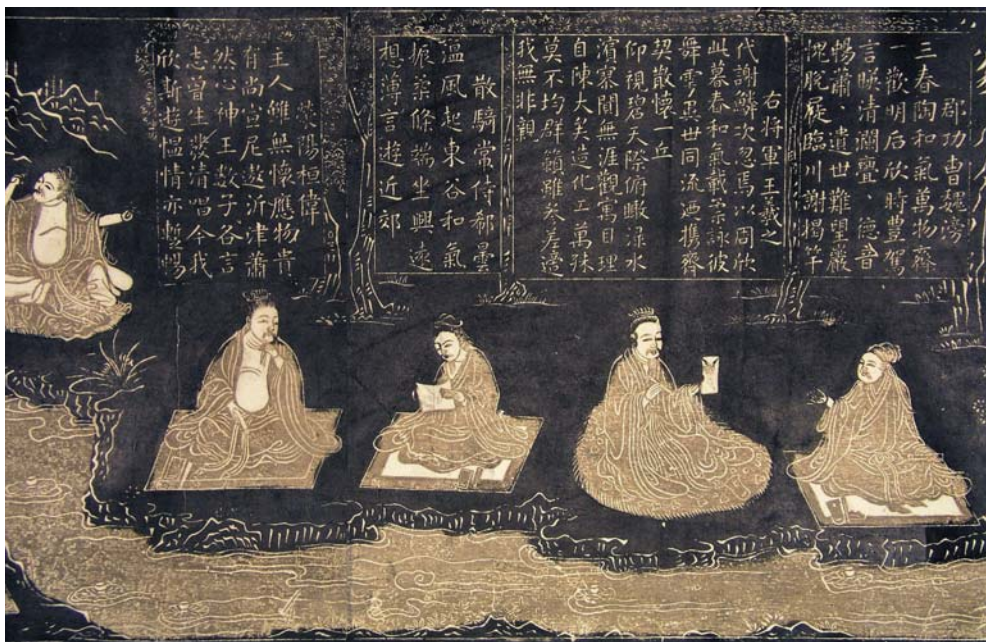 郡功曹魏滂
三春陶和氣萬物齊
一歡明后欣時豐駕
言暎清瀾亹〻德音
暢蕭〻遺世難望巖
愧脫屣臨川謝揭竿
右將軍王羲之
代謝鱗次忽焉以周欣
此暮春和氣載柔詠彼
舞雩異世同流迺攜齊
契散懷一丘
仰視碧天際俯瞰淥水
濱寥闃無涯觀寓目理
自陳大矣造化工萬殊
莫不均群籟雖參差適
我無非親
散騎常侍郗曇
溫風起東谷和氣
振柔條端坐興遠
想薄言遊近郊
滎陽桓偉
主人雖無懷應物貴
有尚宣尼遨沂津蕭
然心神王數子各言
志曾生發清唱今我
欣斯遊慍情亦暫暢